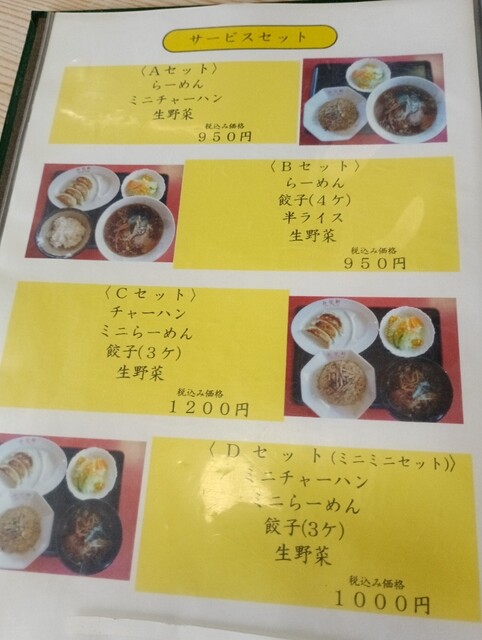 サービスセット
〈Aセット〉
らーめん
ミニチャーハン
生野菜
税込み価格
950円
〈Bセット〉
らーめん
餃子(4ケ)
半ライス
生野菜
税込み価格
950円
〈Cセット〉
チャーハン
ミニらーめん
餃子(3ケ)
生野菜
税込み価格
1200円
〈Dセット(ミニミニセット)〉
ミニチャーハン
ミニらーめん
餃子(3ケ)
生野菜
税込み価格
1000円